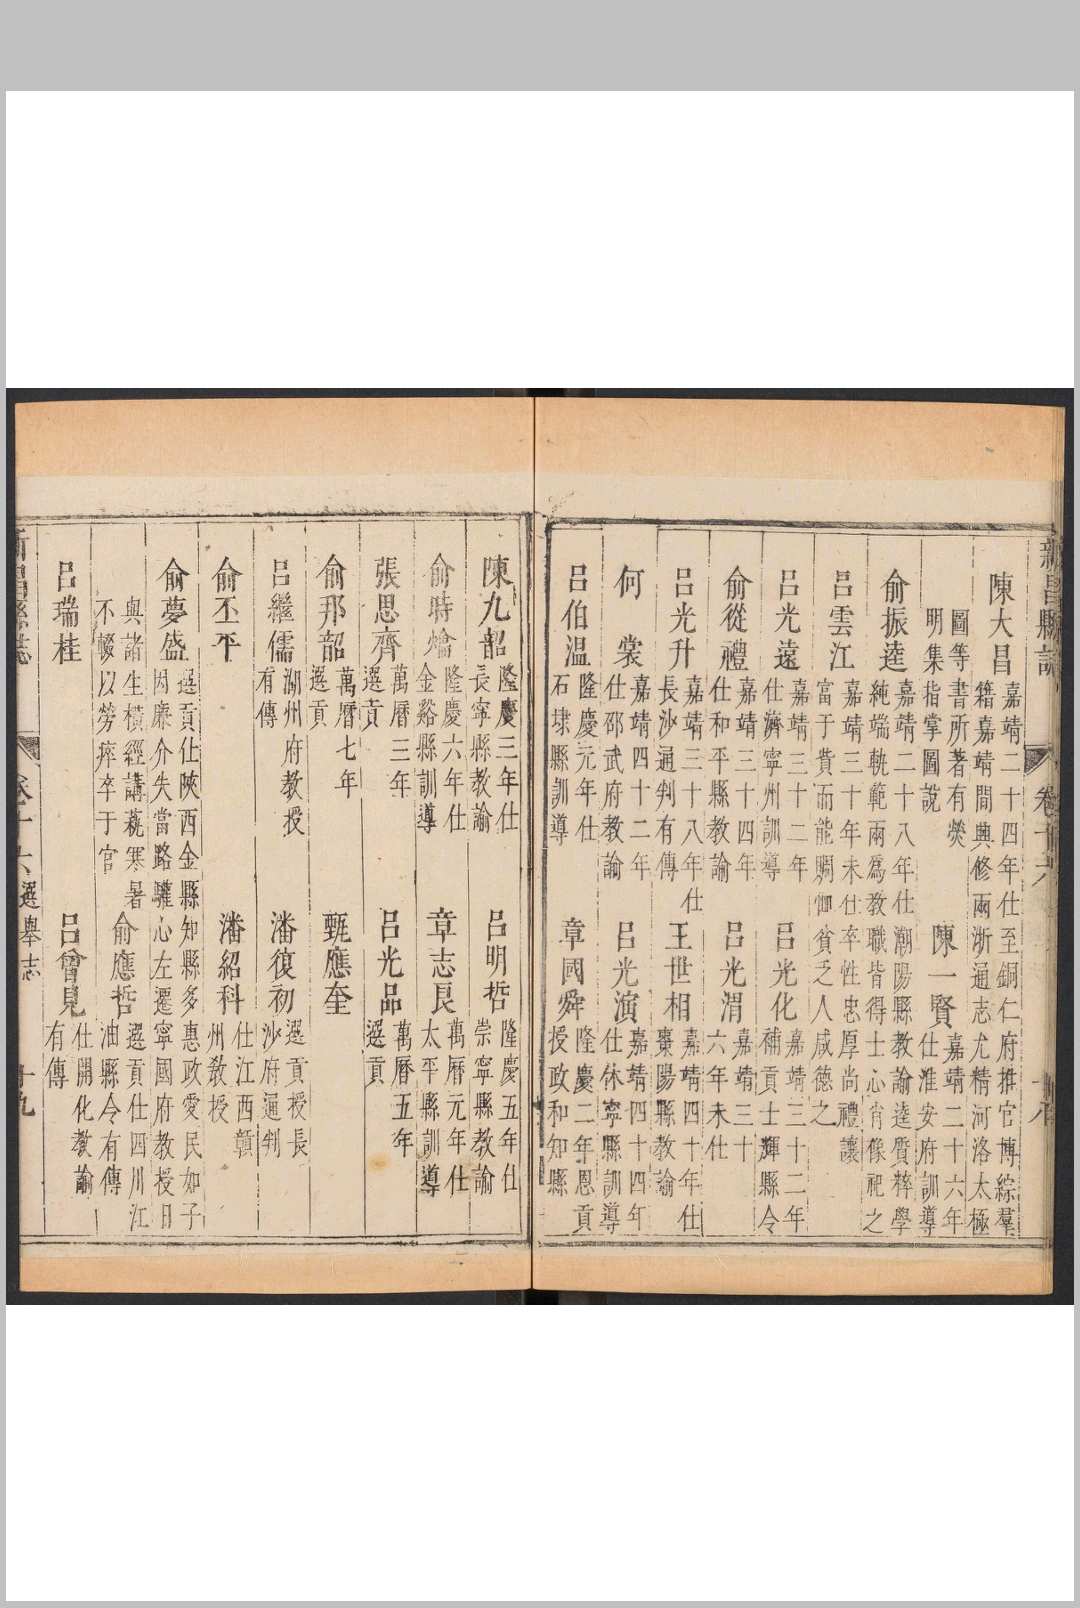 新昌縣誌
卷十六
十八
陳大昌
嘉靖二十四年仕至銅仁府推官博綜羣
籍嘉靖間典修兩浙通志尤精河洛太極
圖等書所著有熒
明集指掌圖說
陳一賢
嘉靖二十六年
仕淮安府訓導
俞振逵
嘉靖二十八年仕潮陽縣教諭逵質粹學
純端軌範兩爲教職皆得士心肖像祀之
呂雲江
嘉靖三十年未仕卒性忠厚尚禮讓
富于貲而能賙卹貧乏人咸德之
呂光遠
嘉靖三十二年
仕濟寧州訓導
呂光化
嘉靖三十二年
補貢士輝縣令
俞從禮
嘉靖三十四年
仕和平縣教諭
呂光渭
嘉靖三十
六年未仕
呂光升
嘉靖三十八年仕
長沙通判有傳
王世相
嘉靖四十年仕
棗陽縣教諭
何裳
嘉靖四十二年
仕邵武府教諭
呂光演
嘉靖四十四年
仕休寧縣訓導
呂伯溫
隆慶元年仕
石埭縣訓導
章國舜
隆慶二年恩貢
授政和知縣
陳九韶
隆慶三年仕
長寧縣教諭
呂明哲
隆慶五年仕
崇寧縣教諭
俞時爚
隆慶六年仕
金谿縣訓導
章志良
萬曆元年仕
太平縣訓導
張思齊
萬曆三年
選貢
呂光品
萬曆五年
選貢
俞邦韶
萬曆七年
選貢
甄應奎
呂繼儒
湖州府教授
有傳
潘復初
選貢授長
沙府通判
俞丕平
潘紹科
仕江西贛
州教授
俞夢盛
選貢仕陝西金縣知縣多惠政愛民如子
因廉介失當路驩心左遷寧國府教授日
與諸生橫經講藝寒暑
不輟以勞瘁卒于官
俞應哲
選貢仕四川江
油縣令有傳
呂瑞桂
呂曾見
仕開化教諭
有傳
新昌縣誌
卷十六
選舉志
十九